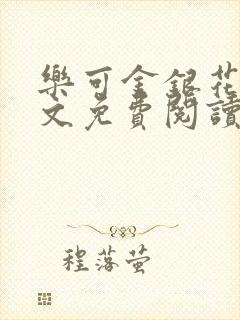 樂可金銀花
文免費閱讀
程落萤